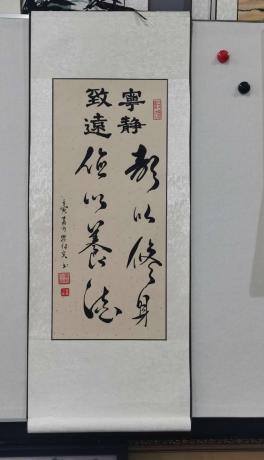 寧靜
致遠
静以修身
儉以養德